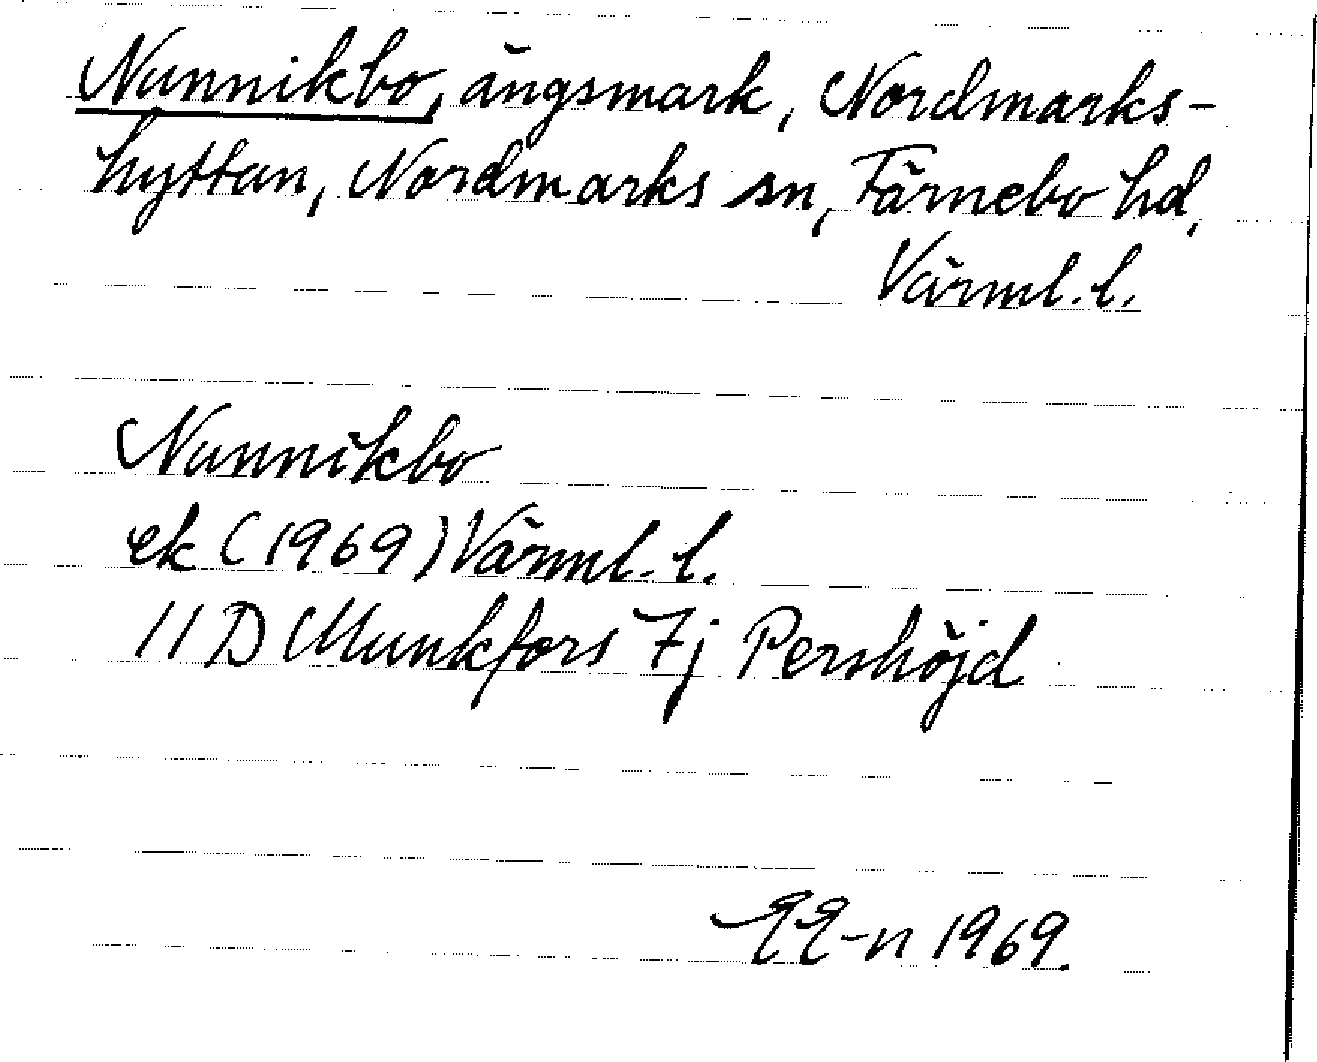 Nunnikbo, ängsmark, Nordmarks-
hyttan, Nordmarks sn, Färnebo hd,
Värml. l.
Nunnikbo
ek (1969) Värml. l.
11 D Munkfors 7j Pershöjd
EE-n 1969.